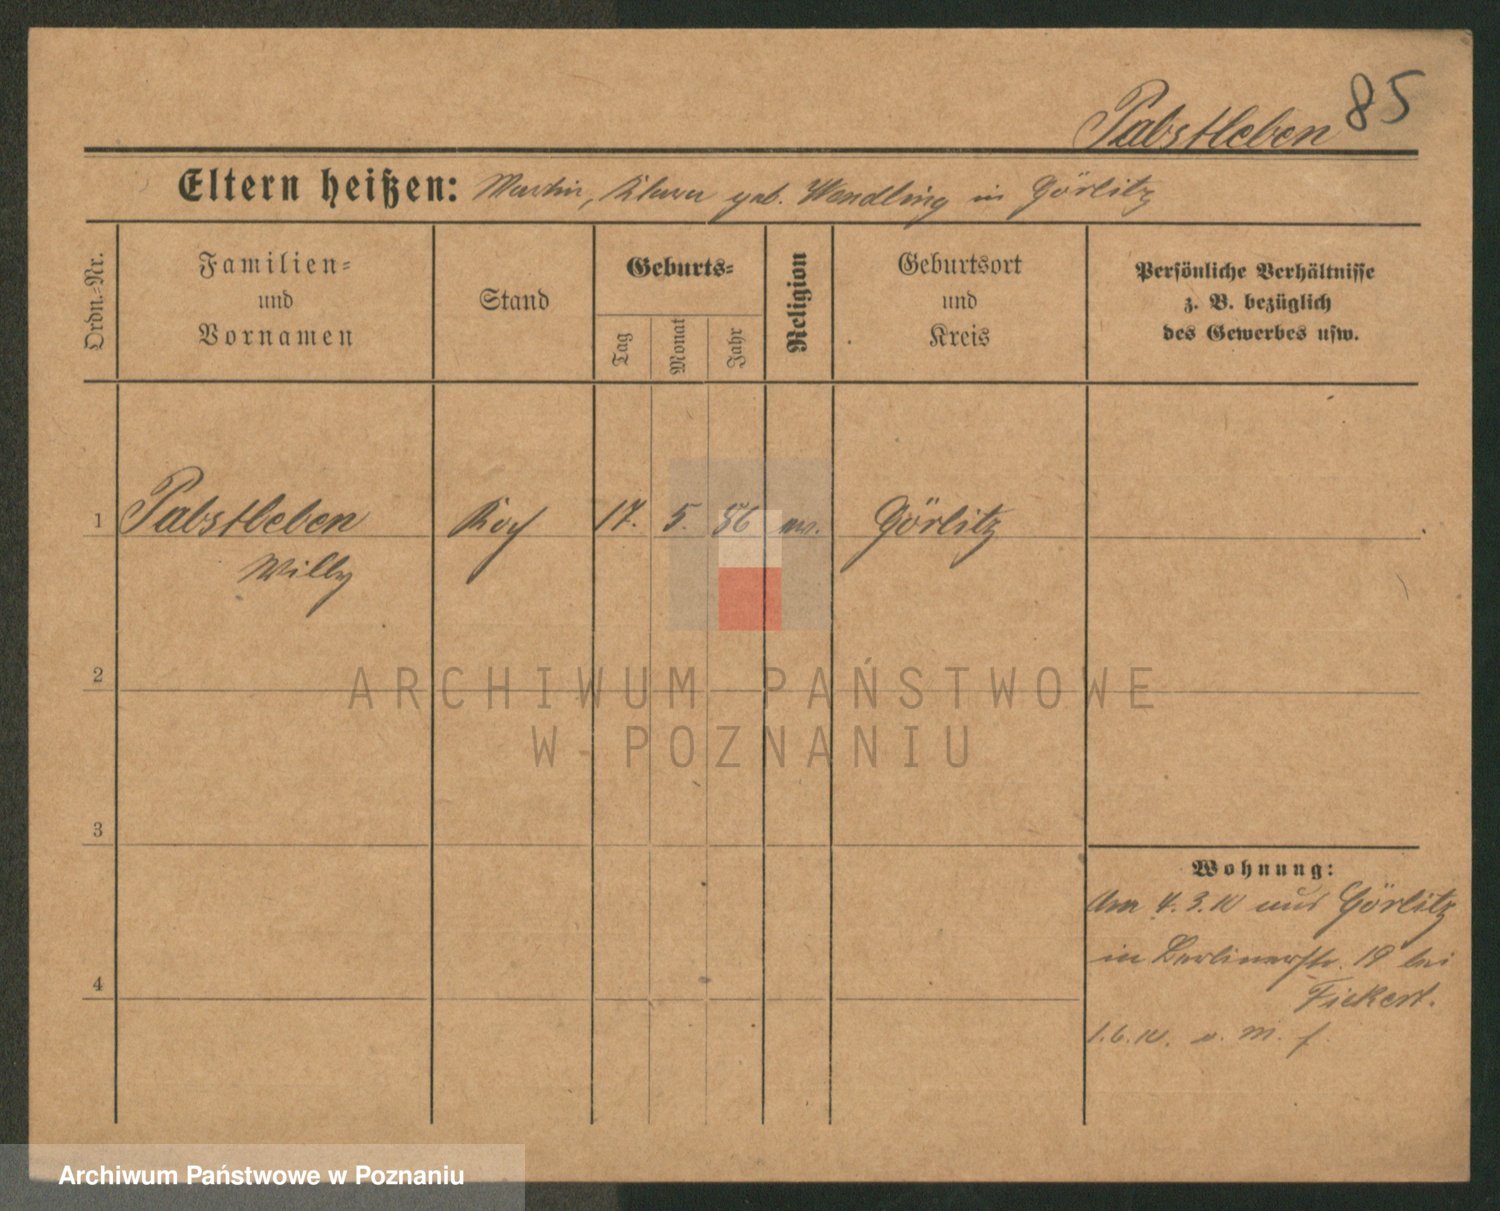 85
Pabstleben
Eltern heißen: Martin, Klara geb. Wendling in Görlitz
Ordn.-Nr.
Familien-
und
Vornamen
Stand
Geburts-
Tag
Monat
Jahr
Religion
Geburtsort
und
Kreis
Persönliche Verhältnisse
z. B. bezüglich
des Gewerbes usw.
1 Pabstleben Koch 17. 5. 56 Görlitz
Willy
2
ARCHIWUM PAŃSTWOWE
W POZNANIU
3
Wohnung:
Am 4. 3. aus Görlitz
in Berlinerstr. 19 bei
4
Fickert.
1. 6. n. M.
Archiwum Państwowe w Poznaniu